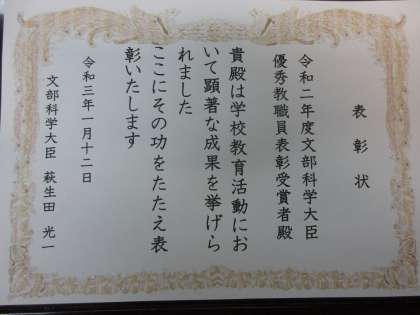 表彰状
令和二年度文部科学大臣
優秀教職員表彰受賞者殿
貴殿は学校教育活動にお
いて顕著な成果を挙げら
れました
ここにその功をたたえ表
彰いたします
令和三年一月十二日
文部科学大臣 萩生田光一